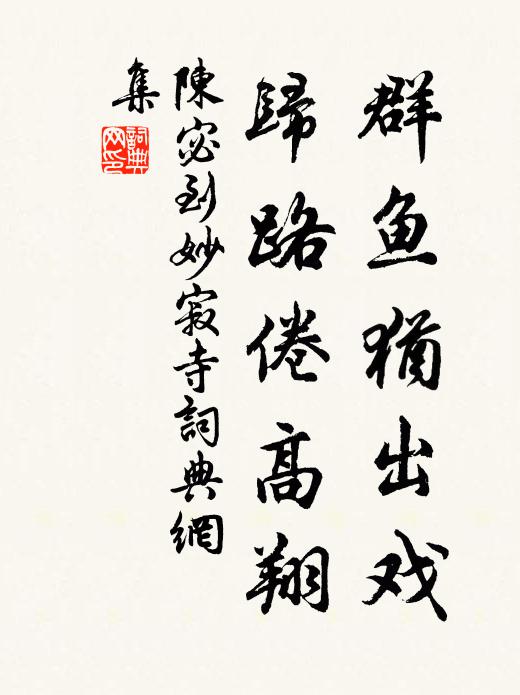 群鱼猶出戏
歸路倦高翔
陳宓到妙寂寺詞典網
集
詞典
网印